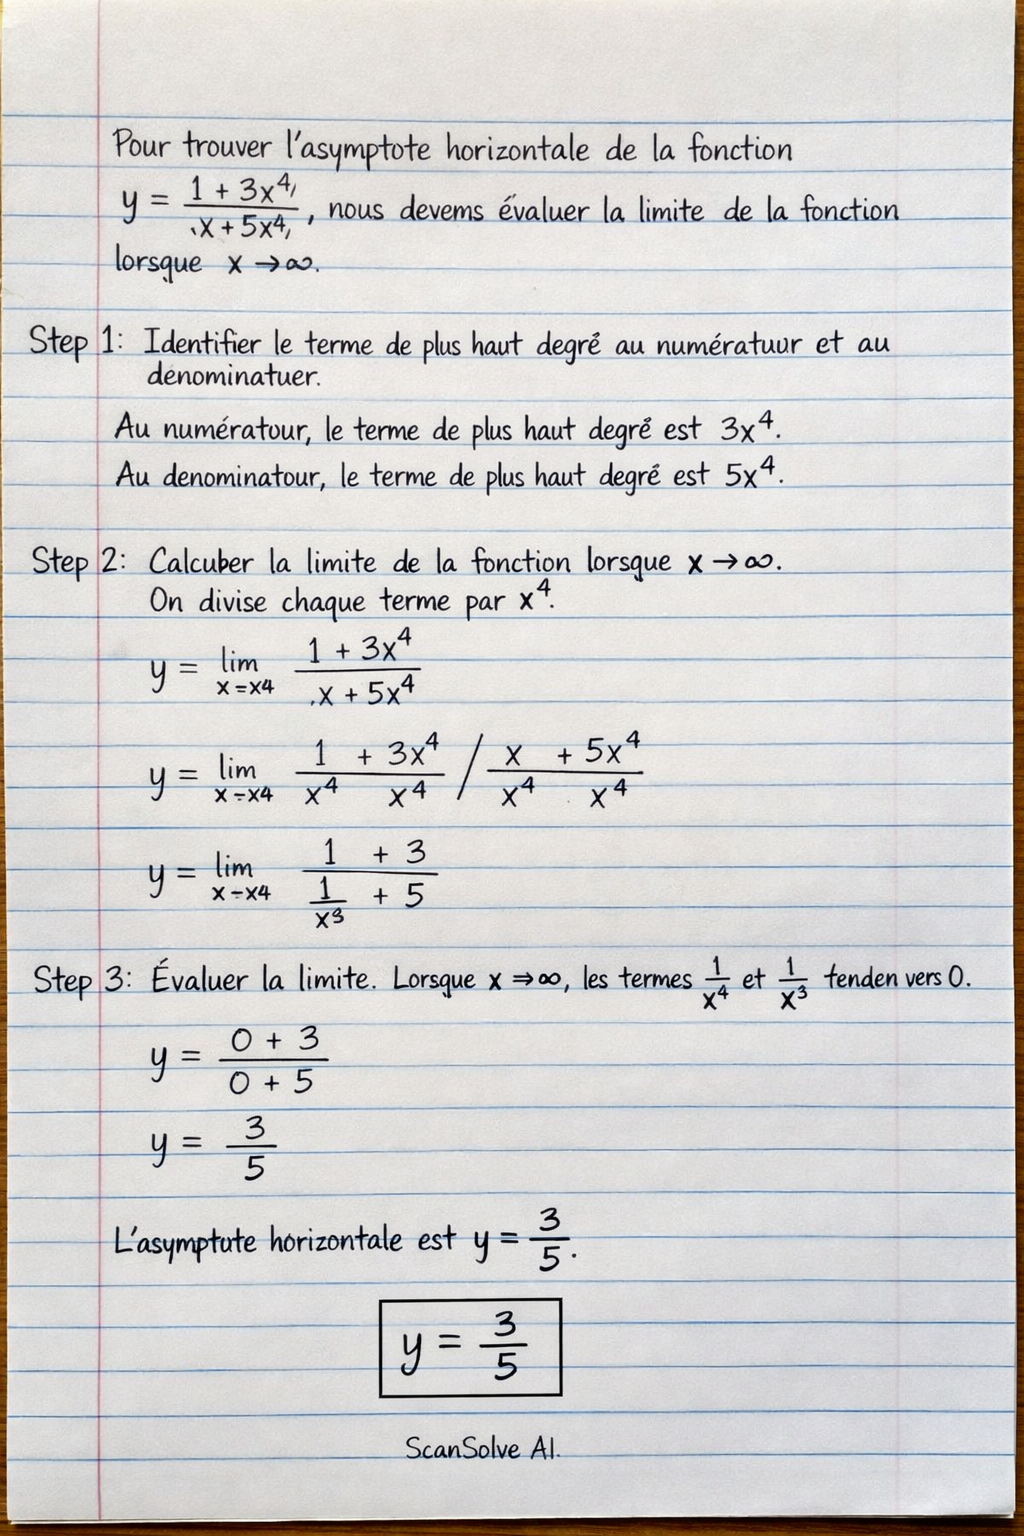 Pour trouver l'asymptote horizontale de la fonction
y = (1 + 3x⁴)/(x + 5x⁴), nous devems évaluer la limite de la fonction
lorsque x → ∞.
Step 1: Identifier le terme de plus haut degré au numératuur et au
dénominatuer.
Au numératour, le terme de plus haut degré est 3x⁴.
Au denominatour, le terme de plus haut degré est 5x⁴.
Step 2: Calcuber la limite de la fonction lorsque x → ∞.
On divise chaque terme par x⁴.
y = lim 1 + 3x⁴
x=x4 x + 5x⁴
y = lim 1 + 3x⁴ / x + 5x⁴
x÷x4 x⁴ x⁴ x⁴ x⁴
y = lim 1 + 3
x÷x4 1/x³ + 5
Step 3: Évaluer la limite. Lorsque x ⇒ ∞, les termes 1/x⁴ et 1/x³ tenden vers 0.
y = (0 + 3)/(0 + 5)
y = 3/5
L'asymptute horizontale est y = 3/5.
y = 3/5
ScanSolve AI.